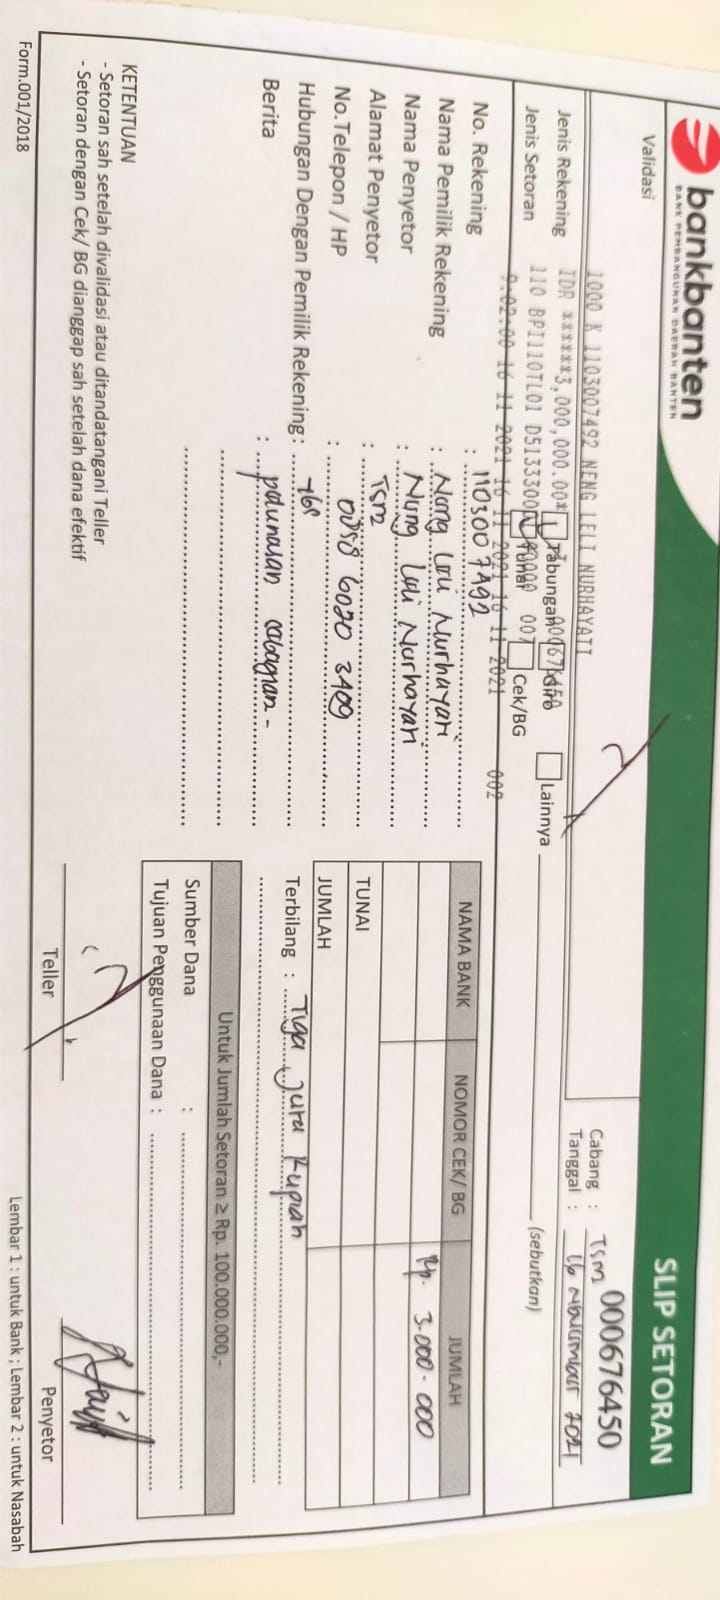 bankbanten
BANK PEMBANGUNAN DAERAH BANTEN
SLIP SETORAN
Validasi
000676450
1000 K 1103007492 NENG LELI NURHAYATI
IDR ******3,000,000.00* 000676450
110 BPI110TL01 007
9:02:00 16 11 2021 16 11 2021 16 11 2021 002
Cabang : TSM
Tanggal : 16 November 2021
Jenis Rekening Tabungan Giro Lainnya (sebutkan)
Jenis Setoran Tunai Cek/BG
No. Rekening : 1103007492
Nama Pemilik Rekening : Neng Leli Nurhayati
Nama Penyetor : Neng Leli Nurhayati
Alamat Penyetor : TSM
No.Telepon / HP : 6020 3409
Hubungan Dengan Pemilik Rekening :
Berita : pelunasan sebagian -
NAMA BANK NOMOR CEK/ BG JUMLAH
Rp. 3.000.000
TUNAI
JUMLAH
Terbilang : Tiga Juta Rupiah
Untuk Jumlah Setoran ≥ Rp. 100.000.000,-
Sumber Dana :
Tujuan Penggunaan Dana :
KETENTUAN
- Setoran sah setelah divalidasi atau ditandatangani Teller
- Setoran dengan Cek/ BG dianggap sah setelah dana efektif
Teller
Penyetor
Form.001/2018
Lembar 1 : untuk Bank ; Lembar 2 : untuk Nasabah